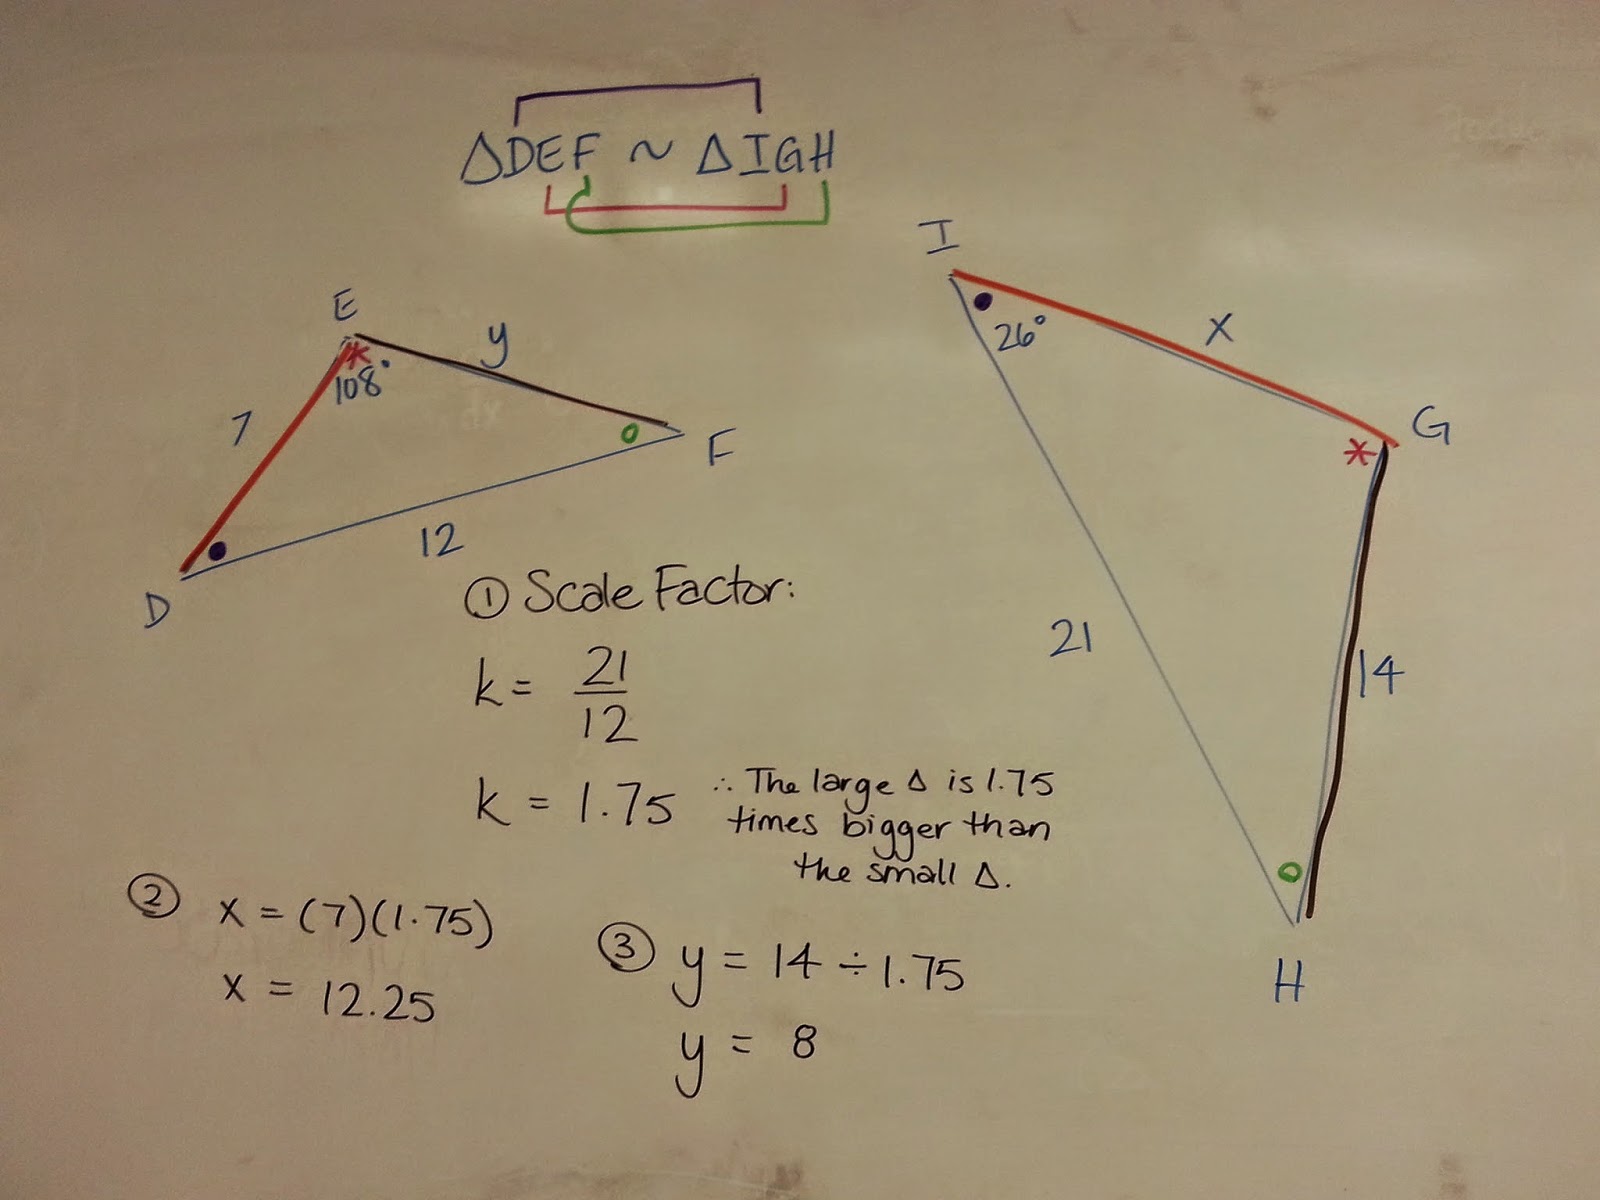 ΔDEF ~ ΔIGH
I
E
y
26°
x
108°
G
7
F
12
D
① Scale Factor:
21
14
k = 21/12
k = 1.75
∴ The large Δ is 1.75
times bigger than
the small Δ.
② x = (7)(1.75)
x = 12.25
③ y = 14 ÷ 1.75
y = 8
H